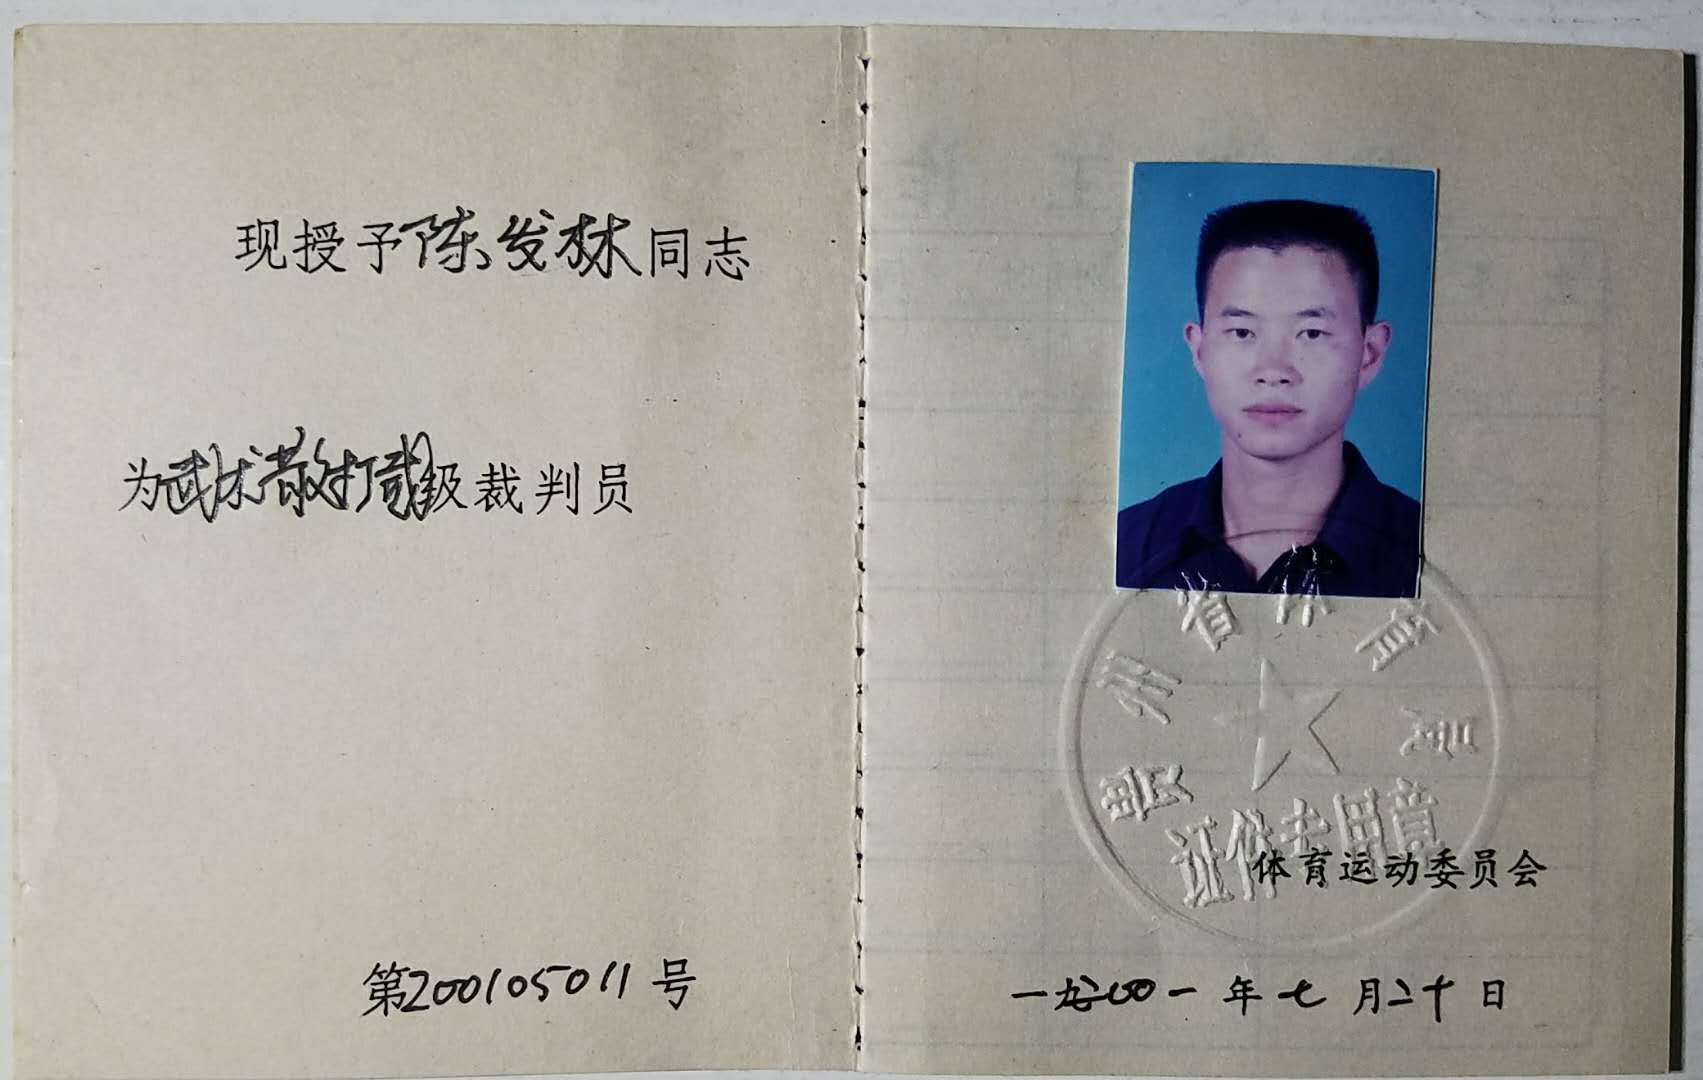 现授予陈发林同志
为武术散打贰级裁判员
第200105011号
贵州省体育局
证件专用章
体育运动委员会
一九二〇〇一年七月二十日